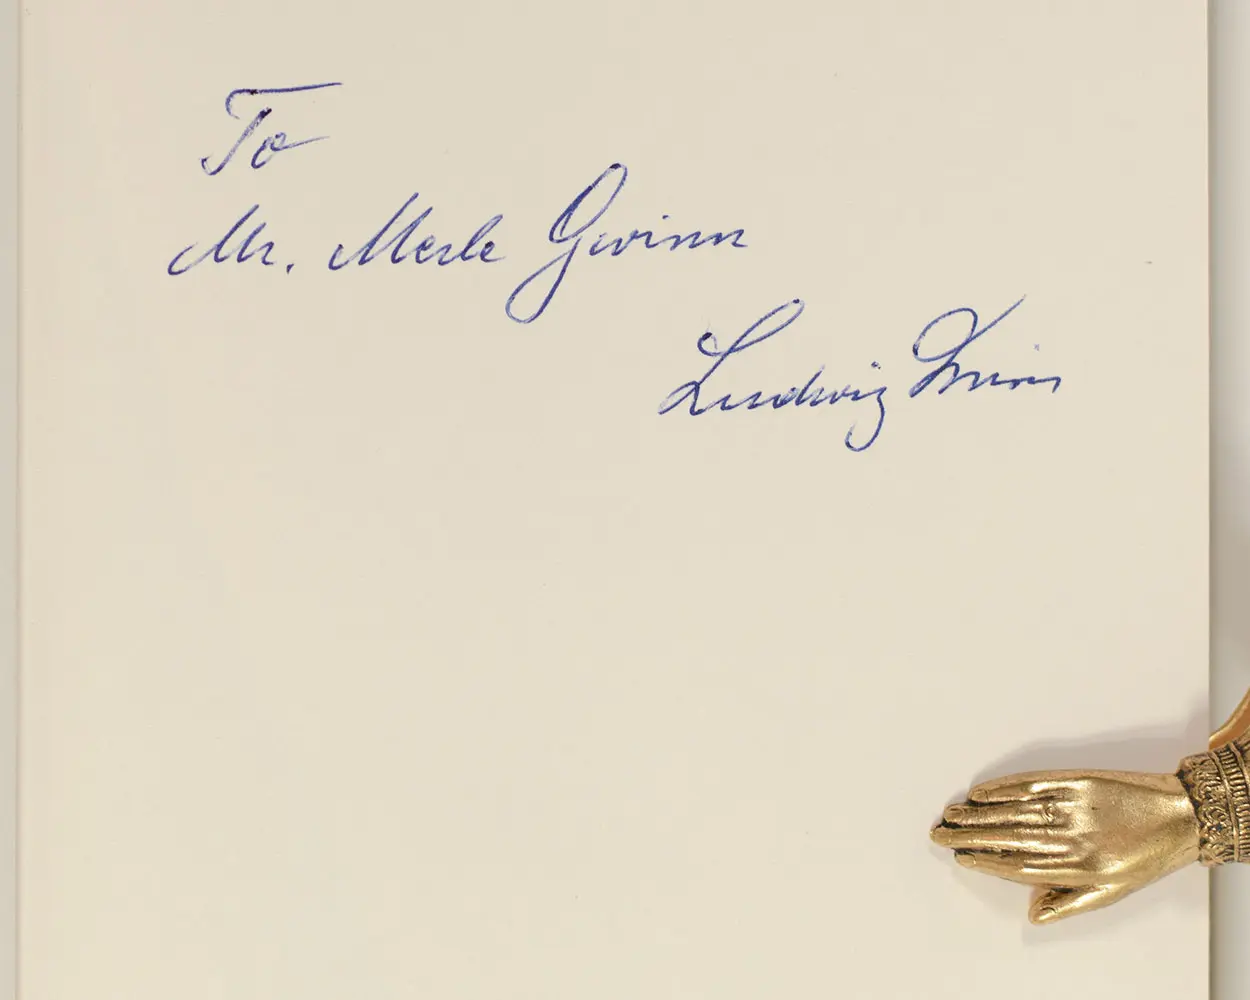 To
Mr. Merle Gwinn
Ludwig